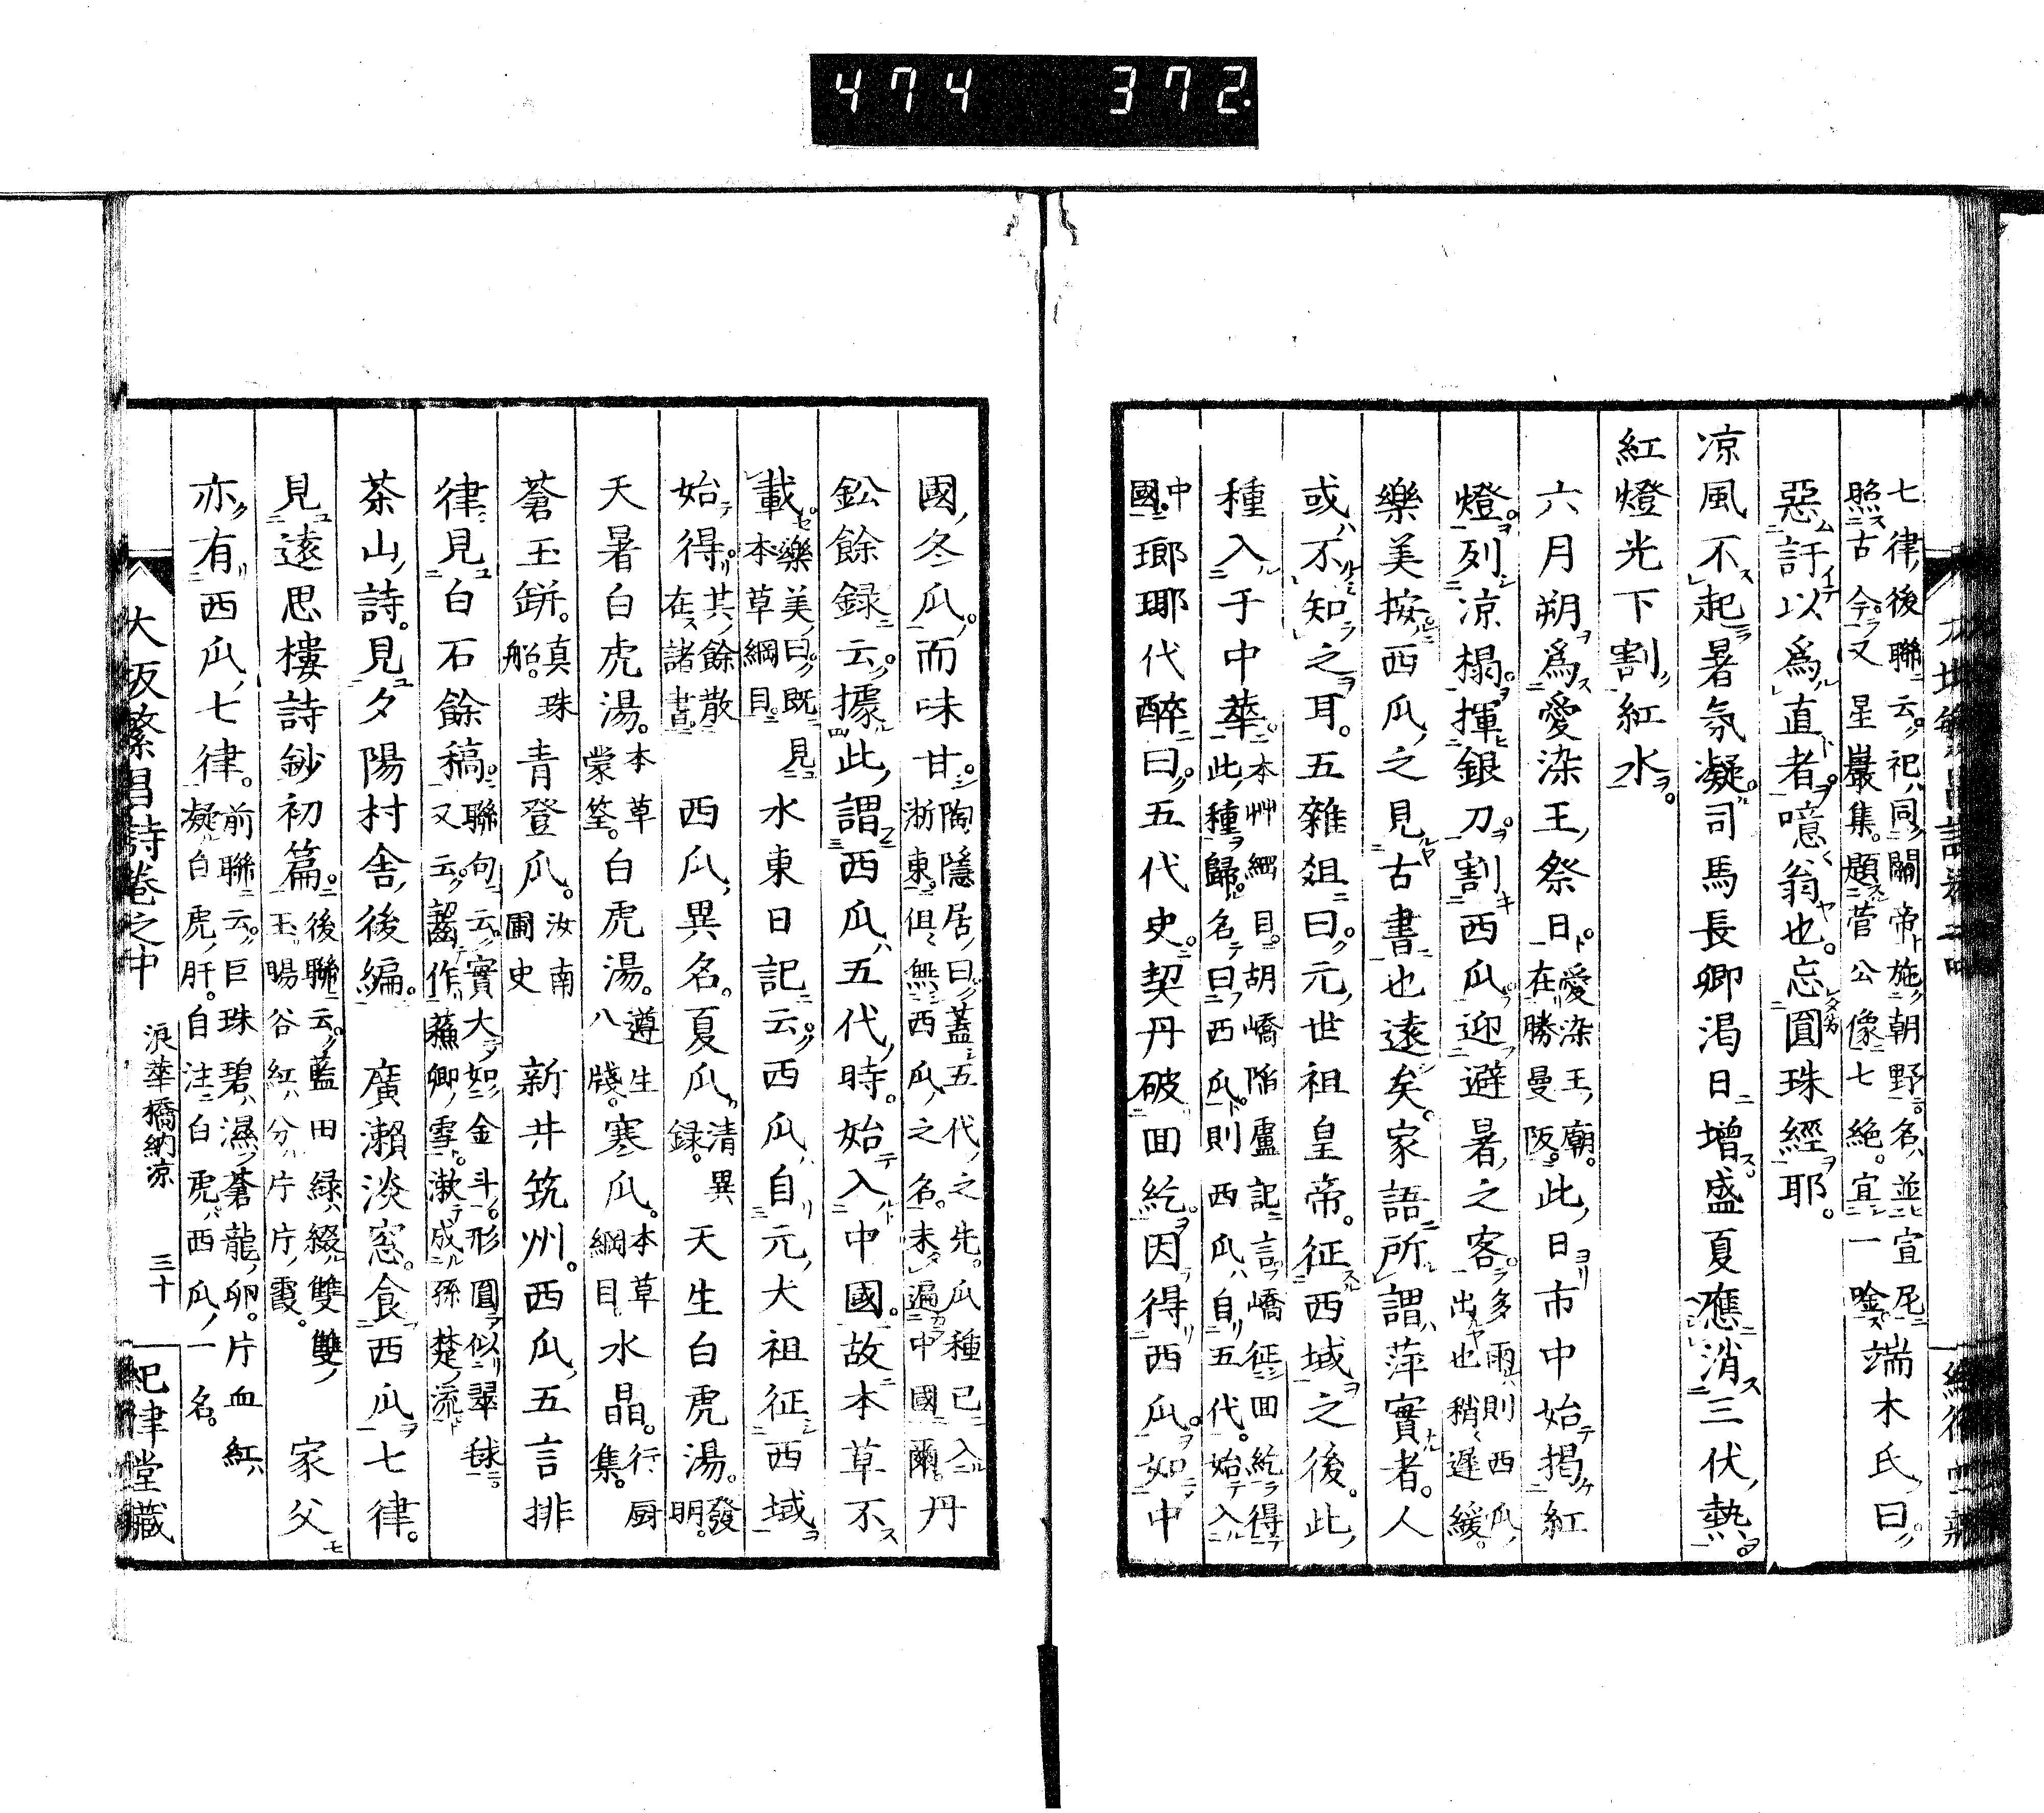 474 372.
七律後聯云祀同關帝施朝野名並宣尼
照古今又星巖集題菅公像七絶宜一唫端木氏曰
惡訐以爲直者噫翁也忘圓珠經耶。
凉風不起暑氛凝司馬長卿渇日増盛夏應消三伏熱
紅燈光下割紅水。
六月朔爲愛染王祭日愛染王廟。在勝曼阪。此日市中始掲紅
燈列凉榻揮銀刀割西瓜迎避暑之客多雨則西瓜出也稍遲緩。
樂美按西瓜之見古書也遠矣。家語所謂萍實者。人
或不知之耳。五雜俎曰元世祖皇帝。征西域之後。此
種入于中華本艸綱目。胡嶠陥盧記言嶠征回紇得此種歸名曰西瓜則西瓜自五代。始入中國
瑯琊代醉曰五代史契丹破回紇因得西瓜如中
國冬瓜而味甘陶隱居曰蓋五代之先。瓜種已入浙東。但無西瓜之名。未遍中國爾。丹
鉛餘録云據此謂西瓜五代時。始入中國。故本草不
載樂美曰既見本草綱目水東日記云西瓜自元大祖征西域
始得其餘散在諸書西瓜異名。夏瓜清異録。天生白虎湯。發明。
天暑白虎湯。本草蒙筌。白虎湯。遵生八牋。寒瓜。本草綱目水晶。行厨集。
蒼玉缾。真珠船。青登瓜。汝南圃史新井筑州。西瓜五言排
律見白石餘稿聯句云實大如金斗。形圓似翠毬又云齧作蘓卿雪漱成孫楚流
茶山詩。見夕陽村舎後編。廣瀬淡窓。食西瓜七律。
見遠思樓詩鈔初篇。後聯云藍田緑綴雙雙玉暘谷紅分片片霞。家父
亦有西瓜七律。前聯云巨珠碧濕蒼龍卵。片血紅凝白虎肝。自注白虎西瓜一名。
大坂繁昌詩巻之中 浪華橋納凉 三十 紀律堂藏